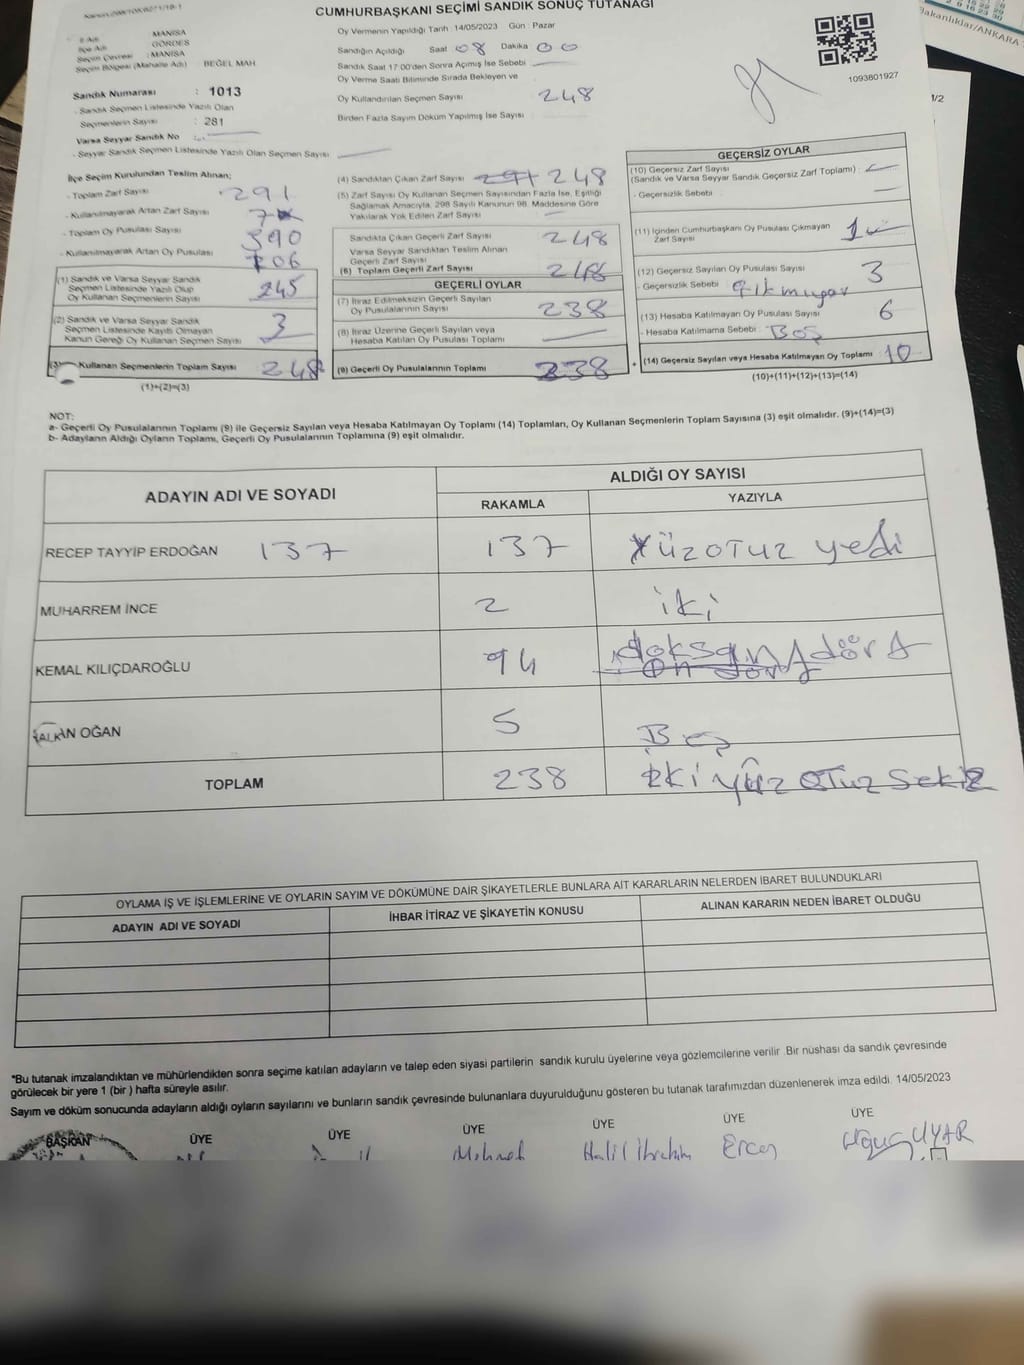 CUMHURBAŞKANI SEÇİMİ SANDIK SONUÇ TUTANAĞI
İlçe Adı
MANİSA
GÖRDES
Seçim Çevresi : MANİSA
Seçim Bölgesi (Mahalle Adı) BEĞEL MAH
Sandık Numarası : 1013
- Sandık Seçmen Listesinde Yazılı Olan
Seçmenlerin Sayısı : 281
Varsa Seyyar Sandık No :
- Seyyar Sandık Seçmen Listesinde Yazılı Olan Seçmen Sayısı
Oy Vermenin Yapıldığı Tarih : 14/05/2023 Gün : Pazar
Sandığın Açıldığı Saat 08 Dakika 00
Sandık Saat 17:00'den Sonra Açılmış İse Sebebi
Oy Verme Saati Bitiminde Sırada Bekleyen ve
Oy Kullandırılan Seçmen Sayısı 248
Birden Fazla Sayım Döküm Yapılmış İse Sayısı :
1093801927
Bakanlıklar/ANKARA
1/2
İlçe Seçim Kurulundan Teslim Alınan;
- Toplam Zarf Sayısı 291
- Kullanılmayarak Artan Zarf Sayısı
- Toplam Oy Pusulası Sayısı 390
- Kullanılmayarak Artan Oy Pusulası 106
(1) Sandık ve Varsa Seyyar Sandık
Seçmen Listesinde Yazılı Olup
Oy Kullanan Seçmenlerin Sayısı 245
(2) Sandık ve Varsa Seyyar Sandık
Seçmen Listesinde Kayıtlı Olmayan
Kanun Gereği Oy Kullanan Seçmen Sayısı 3
Kullanan Seçmenlerin Toplam Sayısı 248
(1)+(2)=(3)
(4) Sandıktan Çıkan Zarf Sayısı 291 248
(5) Zarf Sayısı Oy Kullanan Seçmen Sayısından Fazla İse, Eşitliği
Sağlamak Amacıyla, 298 Sayılı Kanunun 98. Maddesine Göre
Yakılarak Yok Edilen Zarf Sayısı
Sandıkta Çıkan Geçerli Zarf Sayısı 248
Varsa Seyyar Sandıktan Teslim Alınan
Geçerli Zarf Sayısı
(6) Toplam Geçerli Zarf Sayısı 248
GEÇERLİ OYLAR
(7) İtiraz Edilmeksizin Geçerli Sayılan
Oy Pusulalarının Sayısı 238
(8) İtiraz Üzerine Geçerli Sayılan veya
Hesaba Katılan Oy Pusulası Toplamı
(9) Geçerli Oy Pusulalarının Toplamı 238
GEÇERSİZ OYLAR
(10) Geçersiz Zarf Sayısı
(Sandık ve Varsa Seyyar Sandık Geçersiz Zarf Toplamı) :
- Geçersizlik Sebebi :
(11) İçinden Cumhurbaşkanı Oy Pusulası Çıkmayan
Zarf Sayısı 1
(12) Geçersiz Sayılan Oy Pusulası Sayısı 3
- Geçersizlik Sebebi :
(13) Hesaba Katılmayan Oy Pusulası Sayısı 6
- Hesaba Katılmama Sebebi : BOŞ
+ (14) Geçersiz Sayılan veya Hesaba Katılmayan Oy Toplamı : 10
(10)+(11)+(12)+(13)=(14)
NOT:
a- Geçerli Oy Pusulalarının Toplamı (9) ile Geçersiz Sayılan veya Hesaba Katılmayan Oy Toplamı (14) Toplamları, Oy Kullanan Seçmenlerin Toplam Sayısına (3) eşit olmalıdır. (9)+(14)=(3)
b- Adayların Aldığı Oyların Toplamı, Geçerli Oy Pusulalarının Toplamına (9) eşit olmalıdır.
ADAYIN ADI VE SOYADI
ALDIĞI OY SAYISI
RAKAMLA YAZIYLA
RECEP TAYYİP ERDOĞAN 137 137 YÜZOTUZ yedi
MUHARREM İNCE 2 iki
KEMAL KILIÇDAROĞLU 94 doksan dört
OĞAN 5 Beş
TOPLAM 238 iki yüz OTUZ Sekiz
OYLAMA İŞ VE İŞLEMLERİNE VE OYLARIN SAYIM VE DÖKÜMÜNE DAİR ŞİKAYETLERLE BUNLARA AİT KARARLARIN NELERDEN İBARET BULUNDUKLARI
ADAYIN ADI VE SOYADI İHBAR İTİRAZ VE ŞİKAYETİN KONUSU ALINAN KARARIN NEDEN İBARET OLDUĞU
*Bu tutanak imzalandıktan ve mühürlendikten sonra seçime katılan adayların ve talep eden siyasi partilerin sandık kurulu üyelerine veya gözlemcilerine verilir. Bir nüshası da sandık çevresinde
görülecek bir yere 1 (bir ) hafta süreyle asılır.
Sayım ve döküm sonucunda adayların aldığı oyların sayılarını ve bunların sandık çevresinde bulunanlara duyurulduğunu gösteren bu tutanak tarafımızdan düzenlenerek imza edildi. 14/05/2023
BAŞKAN ÜYE ÜYE ÜYE ÜYE ÜYE ÜYE
Mehmet Halil İbrahim Ercan Oğuz UYAR